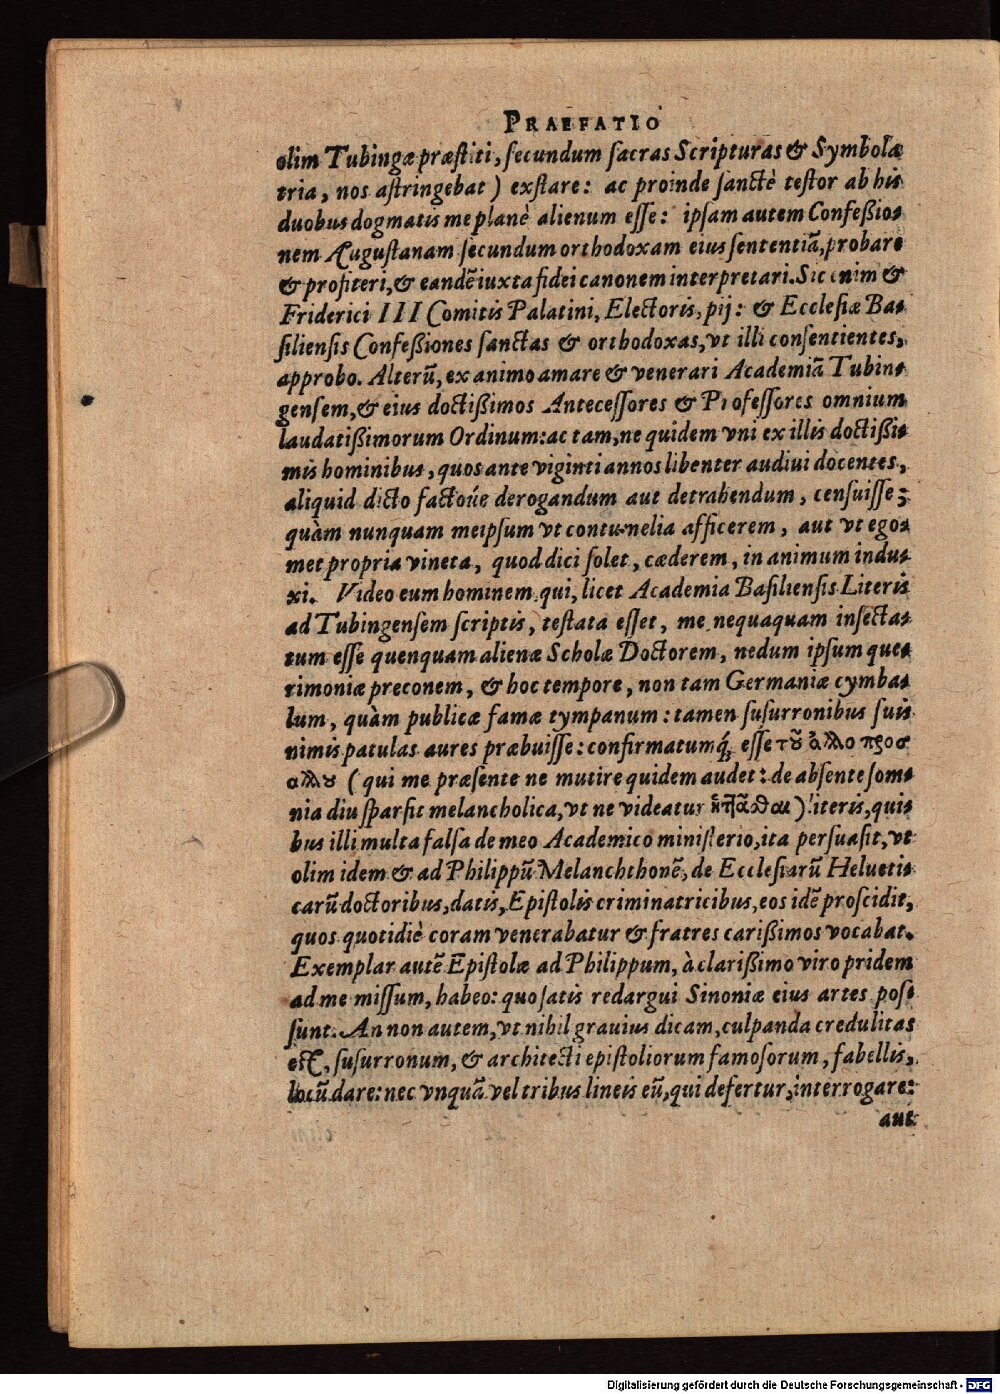 PRAEFATIO
olim Tubingæ præſtiti, ſecundum ſacras Scripturas & Symbola
tria, nos aſtringebat) exſtare: ac proinde ſanctè teſtor ab his
duobus dogmatis me planè alienum eſſe: ipſam autem Confeßio-
nem Auguſtanam ſecundum orthodoxam eius ſententiã, probare
& profiteri, & eandẽ iuxta fidei canonem interpretari. Sic enim &
Friderici III Comitis Palatini, Electoris, pij: & Eccleſiæ Ba-
ſilienſis Confeßiones ſanctas & orthodoxas, vt illi conſentientes,
approbo. Alterũ, ex animo amare & venerari Academiã Tubin-
genſem, & eius doctißimos Anteceſſores & Profeſſores omnium
laudatißimorum Ordinum: ac tam, ne quidem vni ex illis doctißi-
mis hominibus, quos ante viginti annos libenter audiui docentes,
aliquid dicto factoúe derogandum aut detrahendum, cenſuiſſe;
quàm nunquam meipſum vt contumelia afficerem, aut vt ego-
met propria vineta, quod dici ſolet, cæderem, in animum indu-
xi. Video eum hominem, qui, licet Academia Baſilienſis Literis
ad Tubingenſem ſcriptis, teſtata eſſet, me nequaquam inſecta-
tum eſſe quenquam alienæ Scholæ Doctorem, nedum ipſum que-
rimoniæ preconem, & hoc tempore, non tam Germaniæ cymba-
lum, quàm publicæ famæ tympanum: tamen ſuſurronibus ſuis
nimis patulas aures præbuiſſe: confirmatumq́; eſſe
(qui me præſente ne mutire quidem audet: de abſente ſom-
nia diu ſparſit melancholica, vt ne videatur ) literis, qui-
bus illi multa falſa de meo Academico miniſterio, ita perſuaſit, vt
olim idem & ad Philippũ Melanchthonẽ, de Eccleſiarũ Helueti-
carũ doctoribus, datis, Epiſtolis criminatricibus, eos idẽ proſcidit,
quos quotidiè coram venerabatur & fratres carißimos vocabat.
Exemplar autẽ Epiſtolæ ad Philippum, à clarißimo viro pridem
ad me miſſum, habeo: quo ſatis redargui Sinoniæ eius artes poſ-
ſunt. An non autem, vt nihil grauius dicam, culpanda credulitas
eſt, ſuſurronum, & architecti epiſtoliorum famoſorum, fabellis,
locũ dare: nec vnquã vel tribus lineis eũ, qui defertur, interrogare:
aut
Digitalisierung gefördert durch die Deutsche Forschungsgemeinschaft - DFG